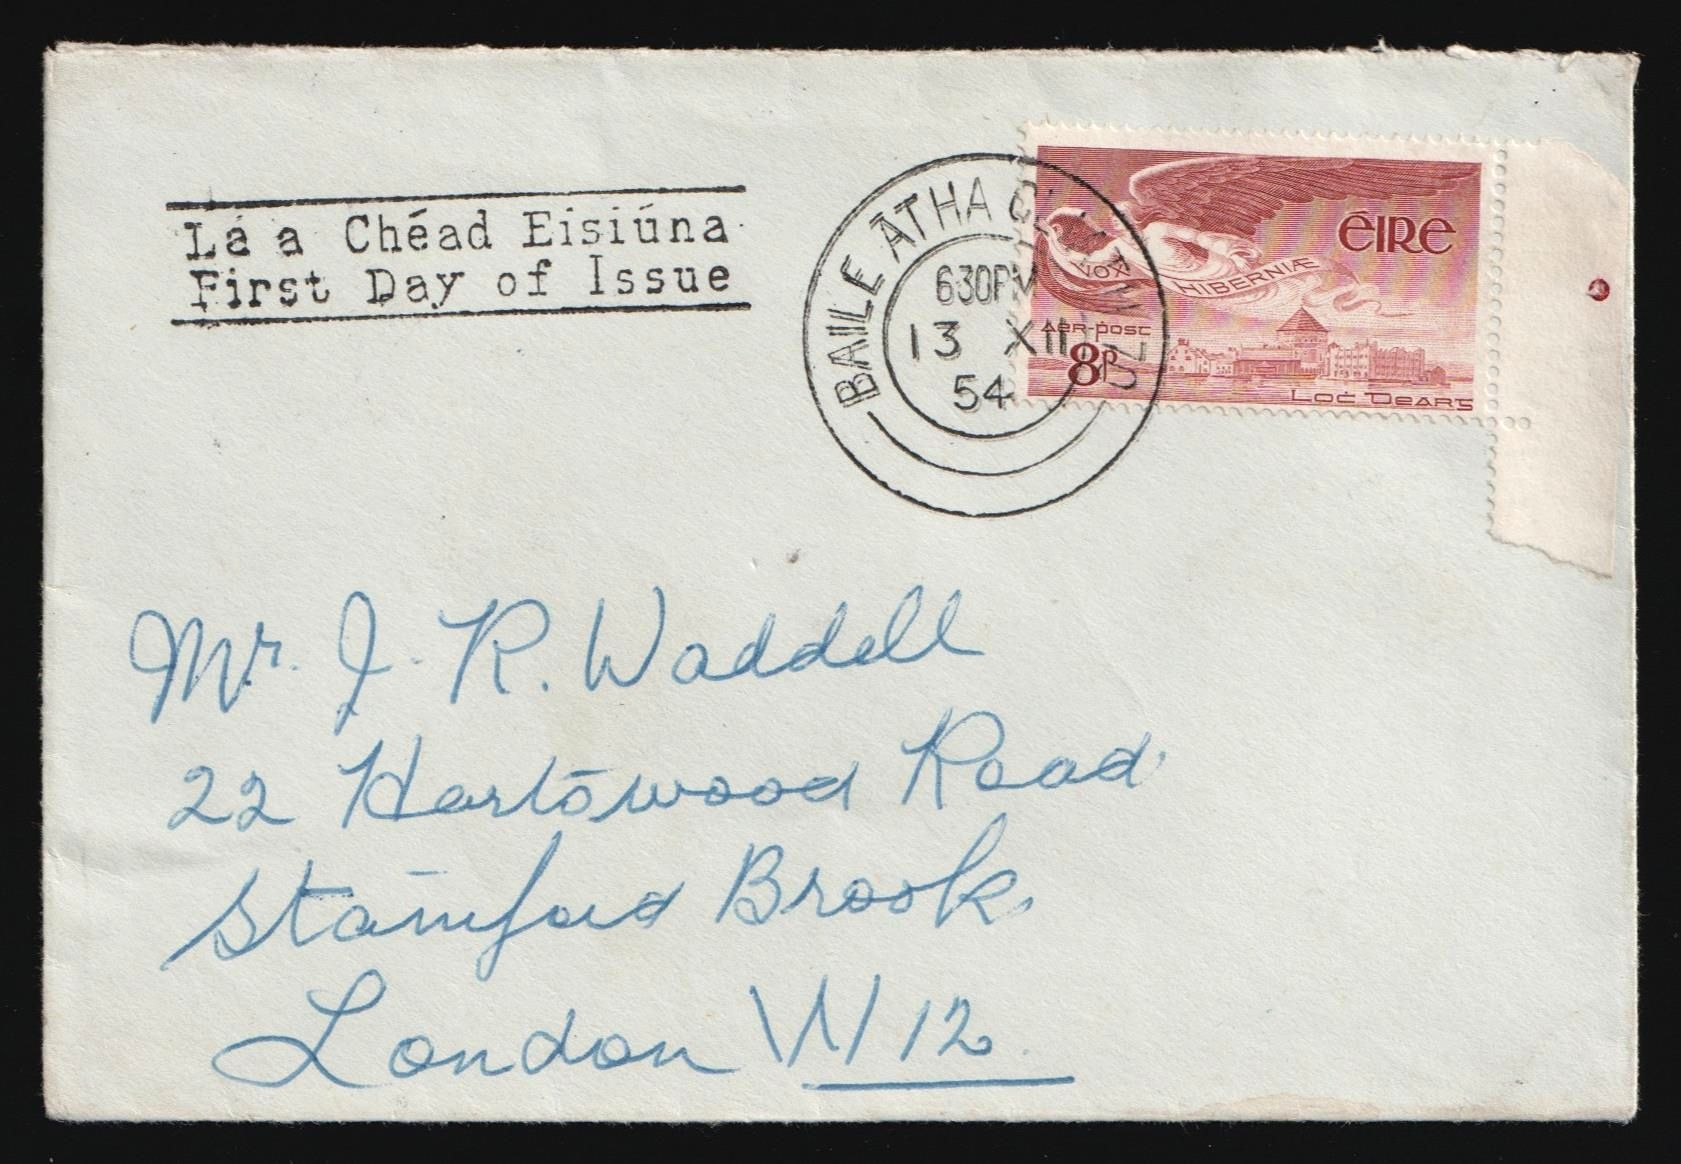 Lá a Chéad Eisiúna
First Day of Issue
BAILE ÁTHA CLIATH
6 30PM
13 XII
54
ÉIRE
VOX HIBERNIÆ
AER-POST
8P
LOĊ DEARG
Mr. J. R. Waddell
22 Hartswood Road
Stamford Brook
London W12.